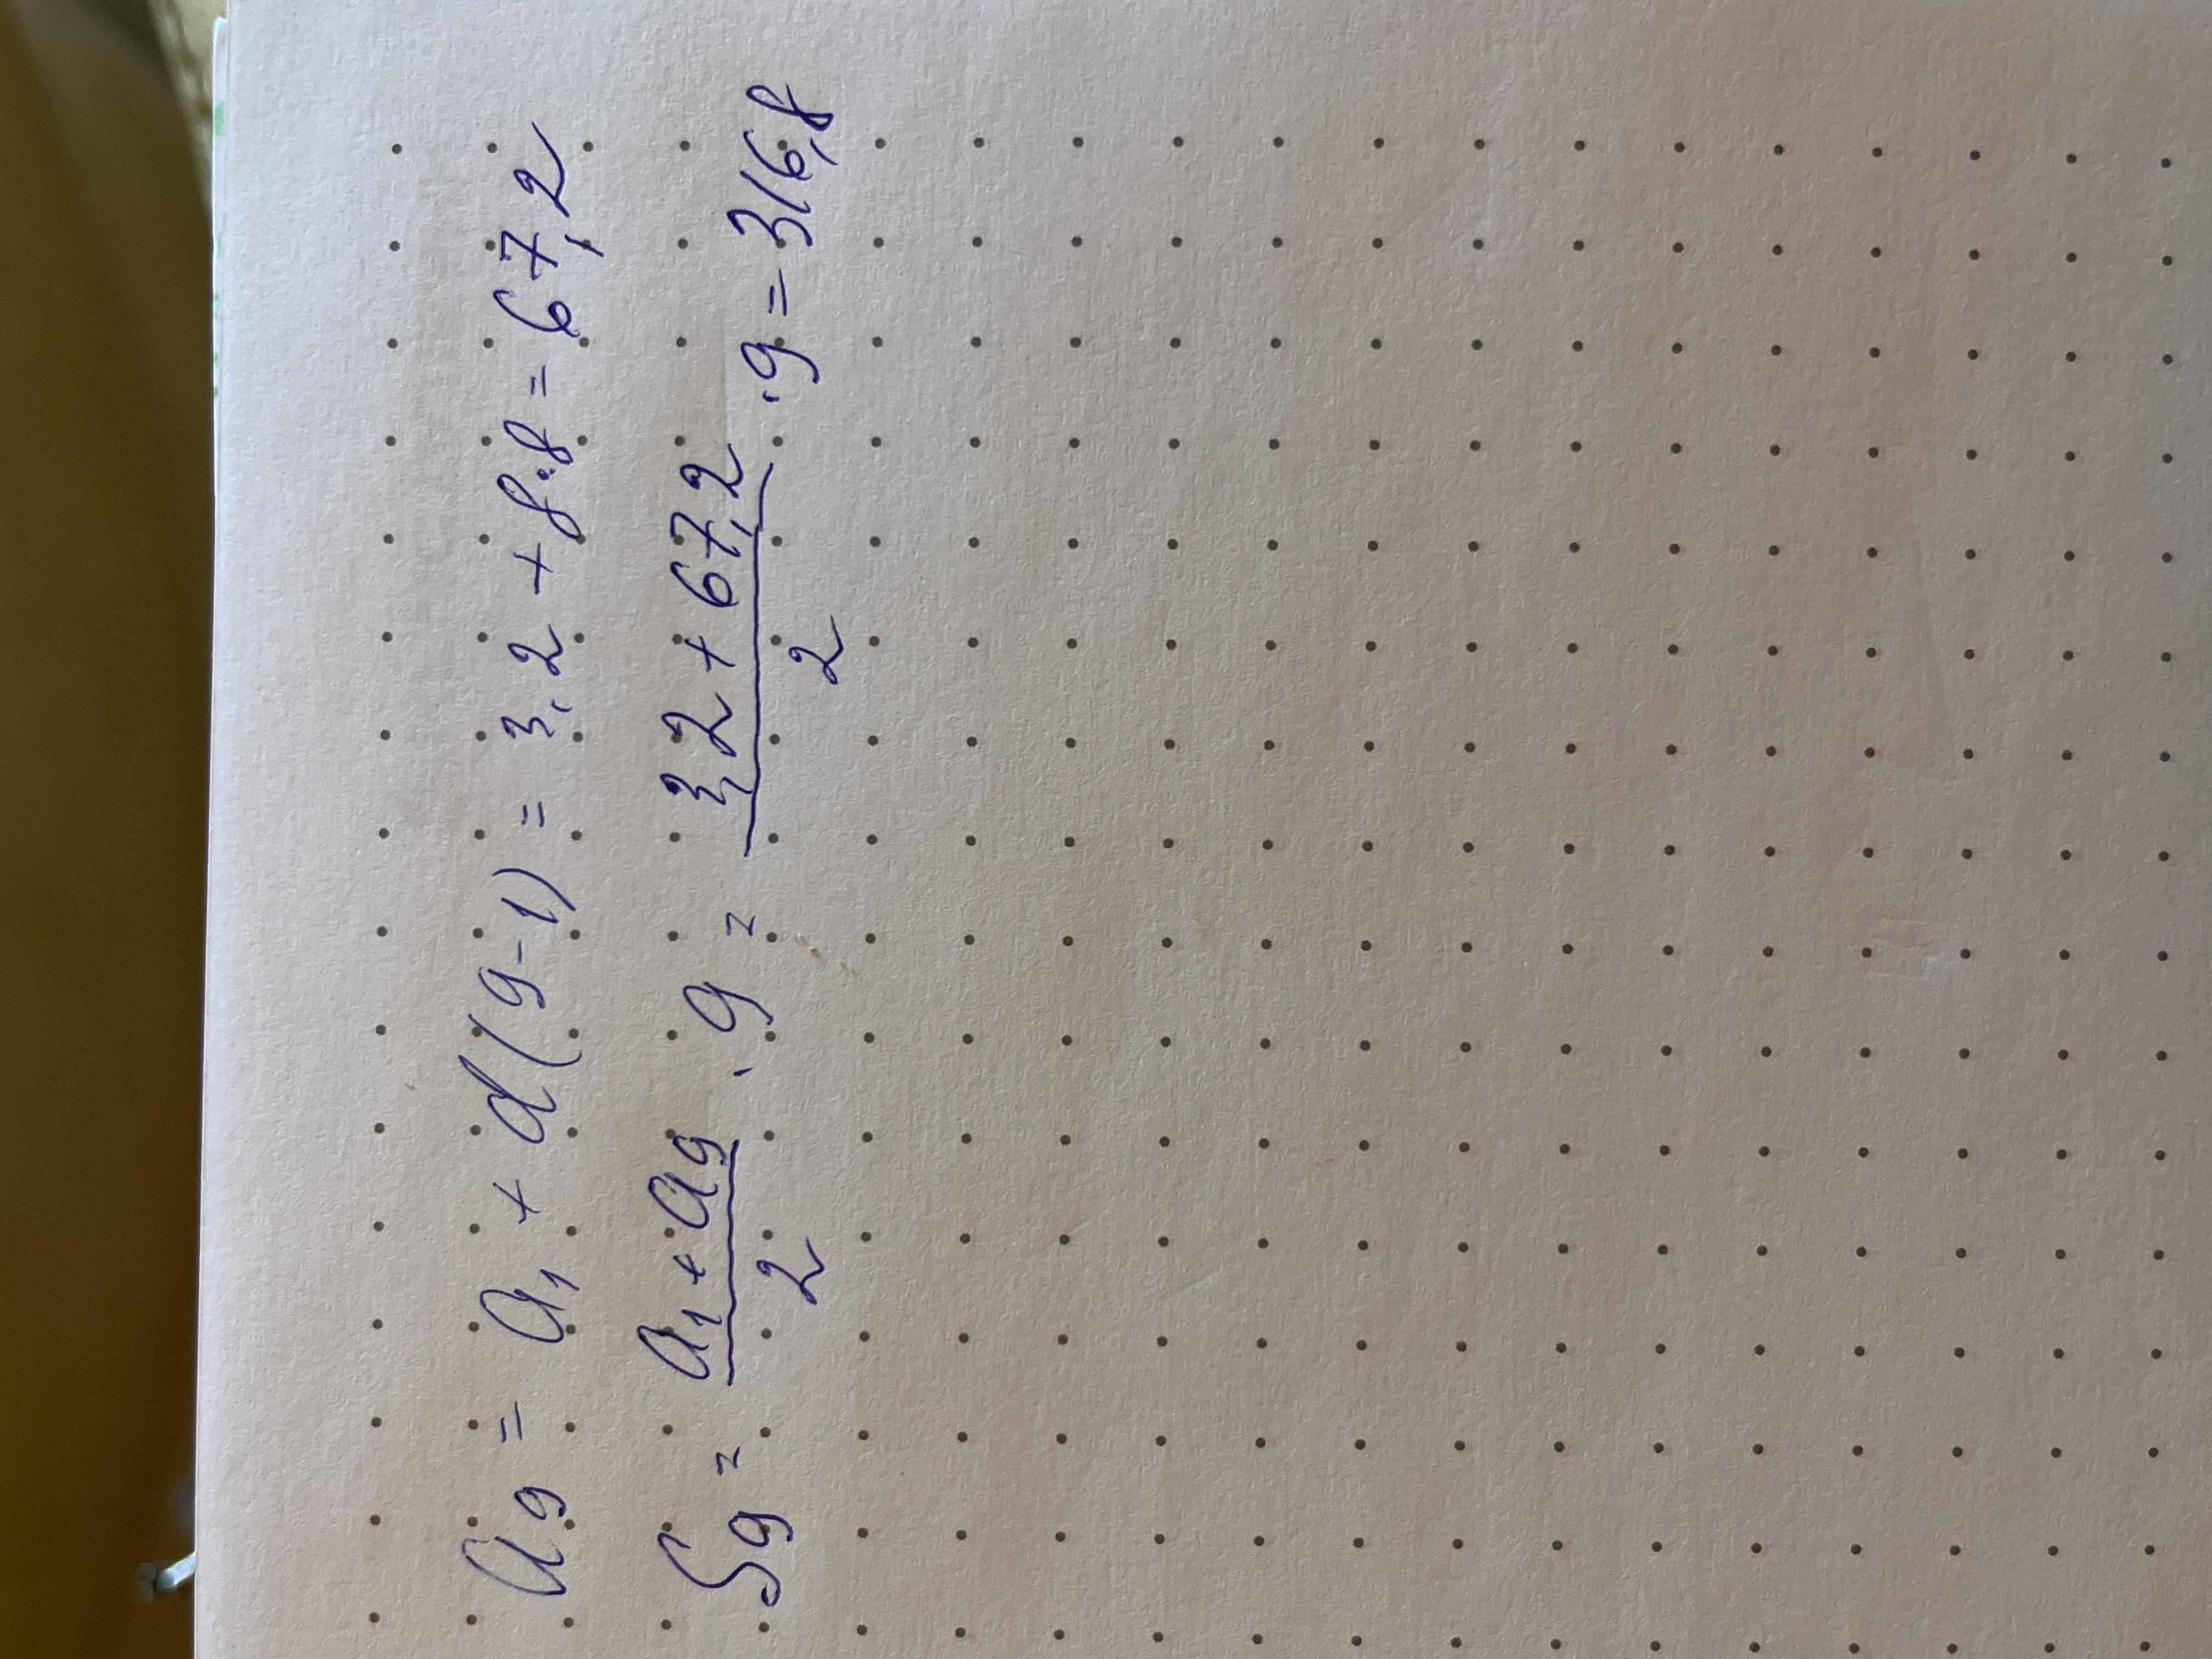 a₉ = a₁ + d(9-1) = 3,2 + 8·8 = 67,2
S₉ = (a₁ + a₉)/2 · 9 = (3,2 + 67,2)/2 · 9 = 316,8